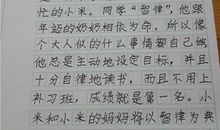 忙的小米。同学“智律”，他跟
年迈的奶奶相依为命，所以像
个大人似的什么事情都自己做
他总是主动地设定目标，并且
十分自律地读书，而且不用上
补习班，成绩就是第一名。小
米和小米的妈妈将以智律为典